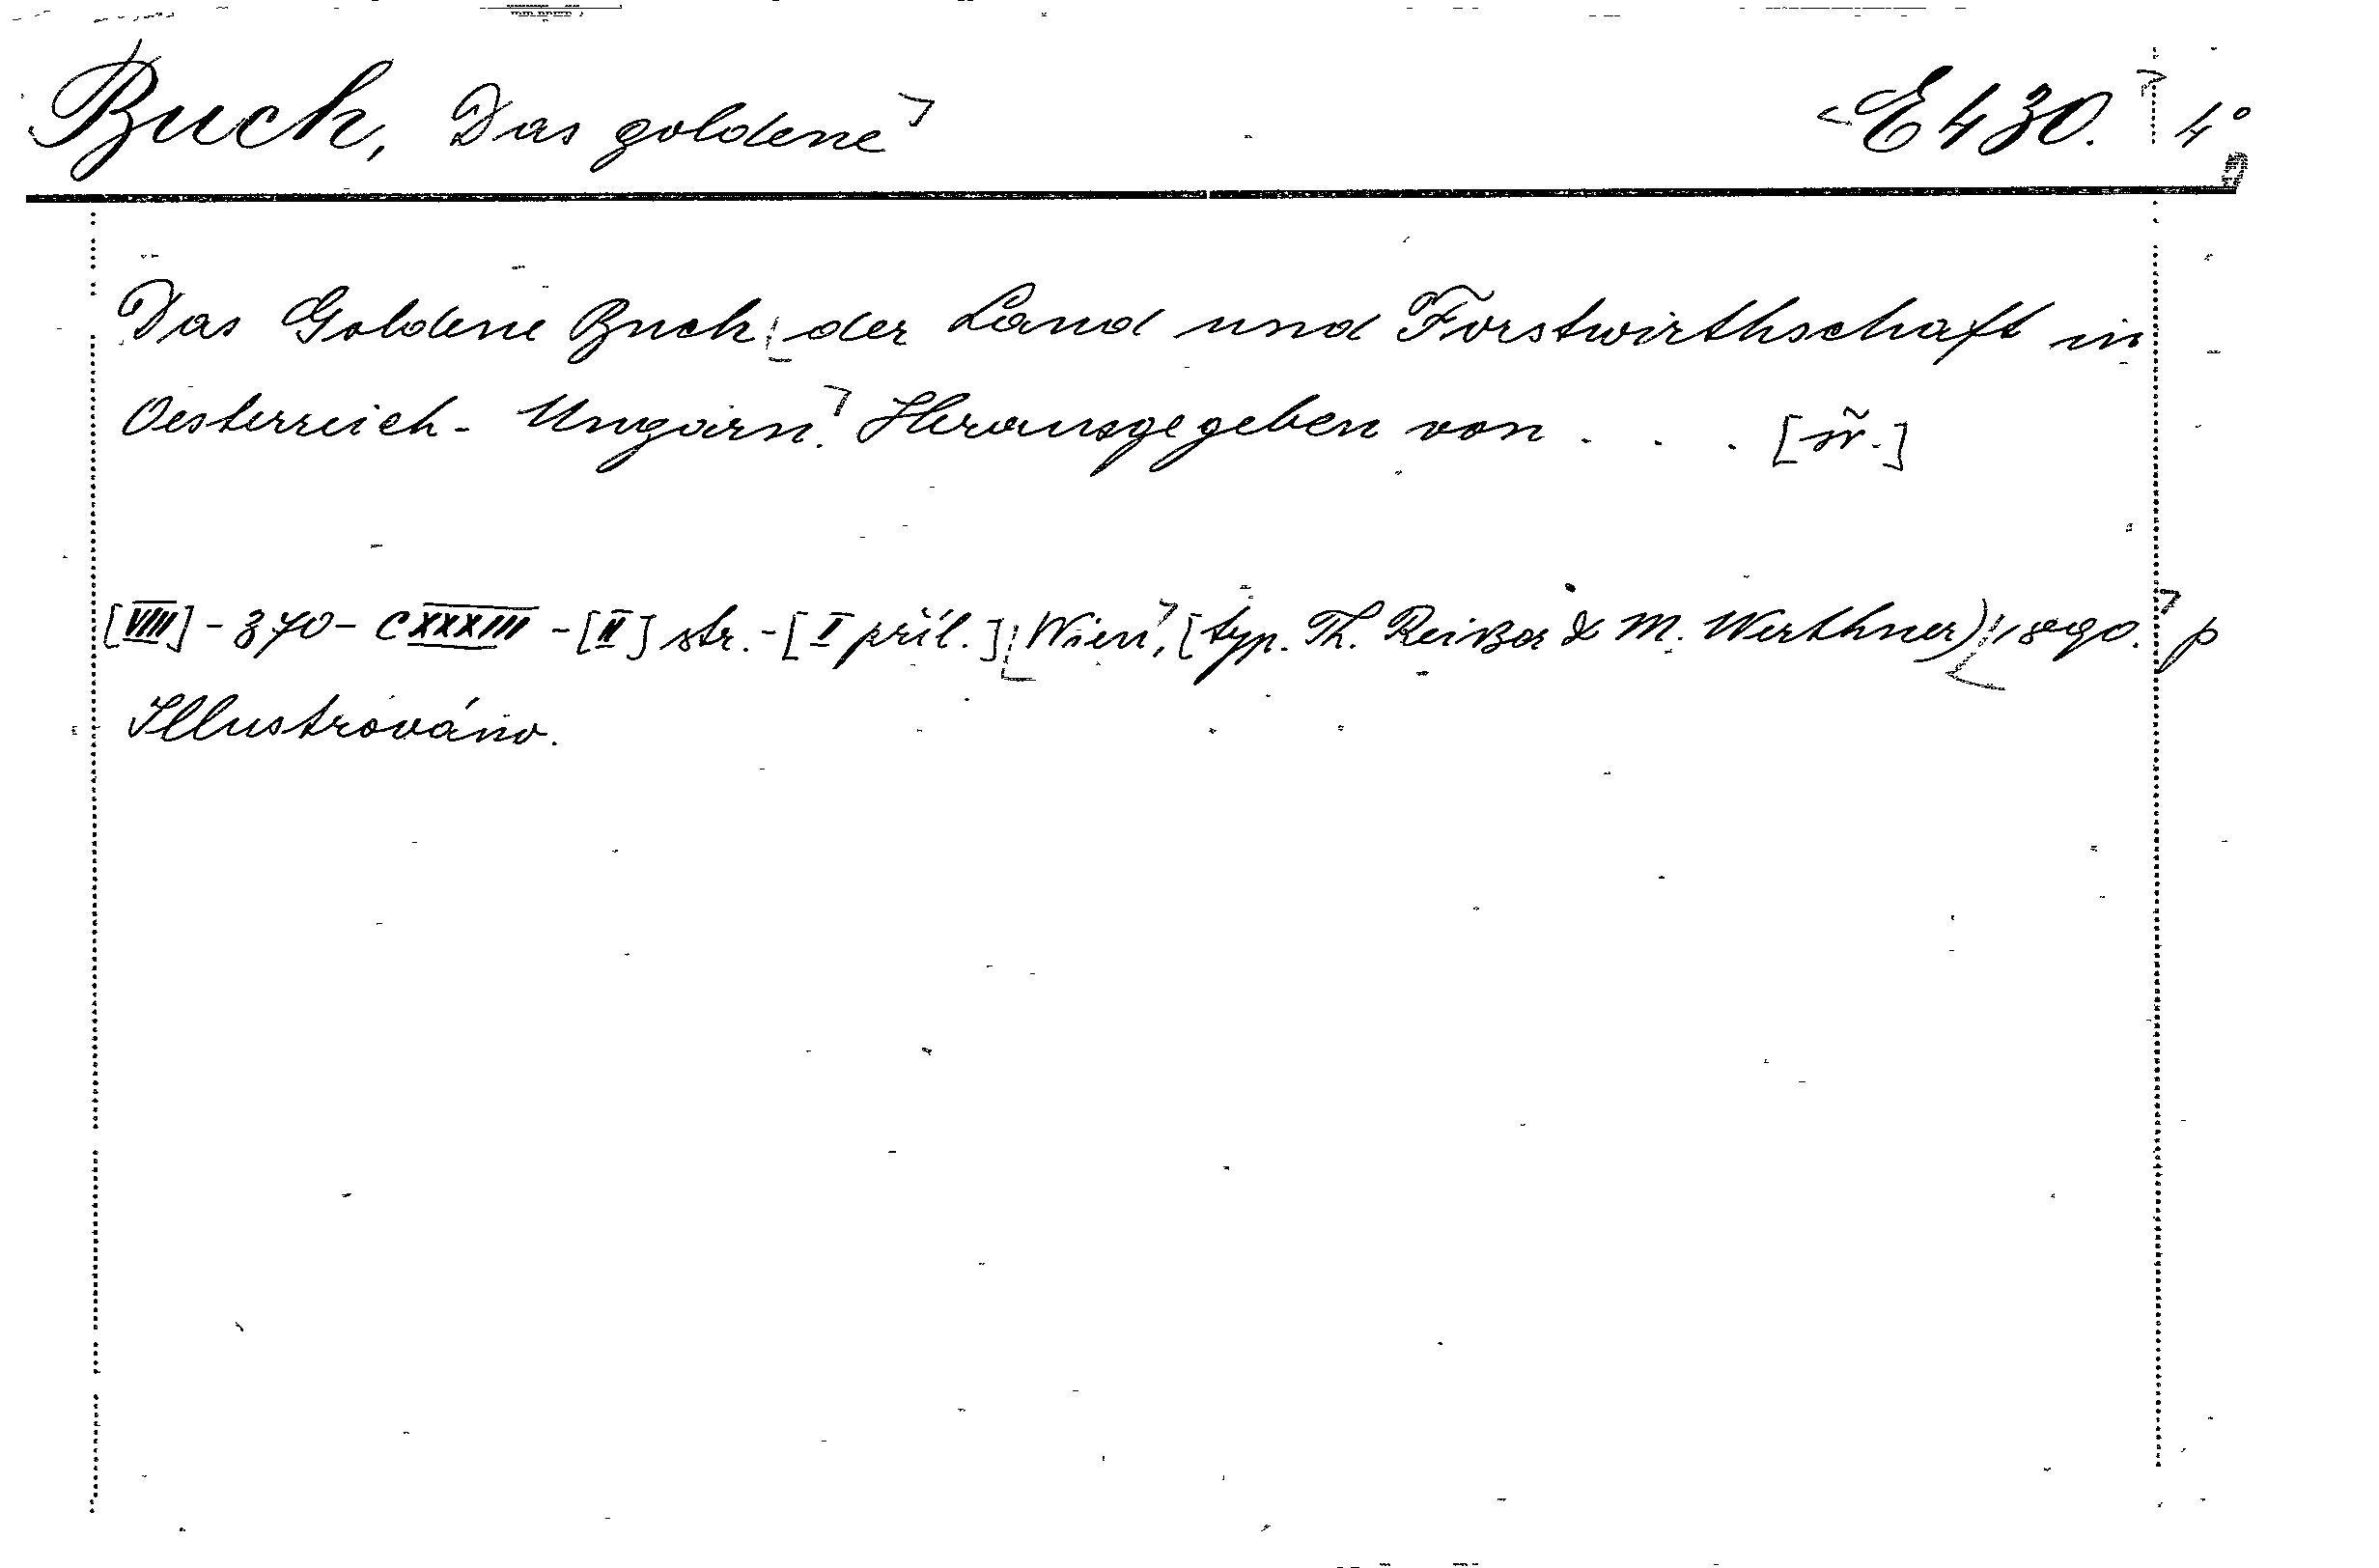 Buch, Das goldene E 430. 4°
Das Goldene Buch der Land und Forstwirthschaft in
Oesterreich-Ungarn. Herausgegeben von . . .
[VIII] - 370 - CXXXIII - [II] str. - [I příl.] Wien, (typ. Th. Reißer & M. Werthner) 1890. p
Illustrováno.